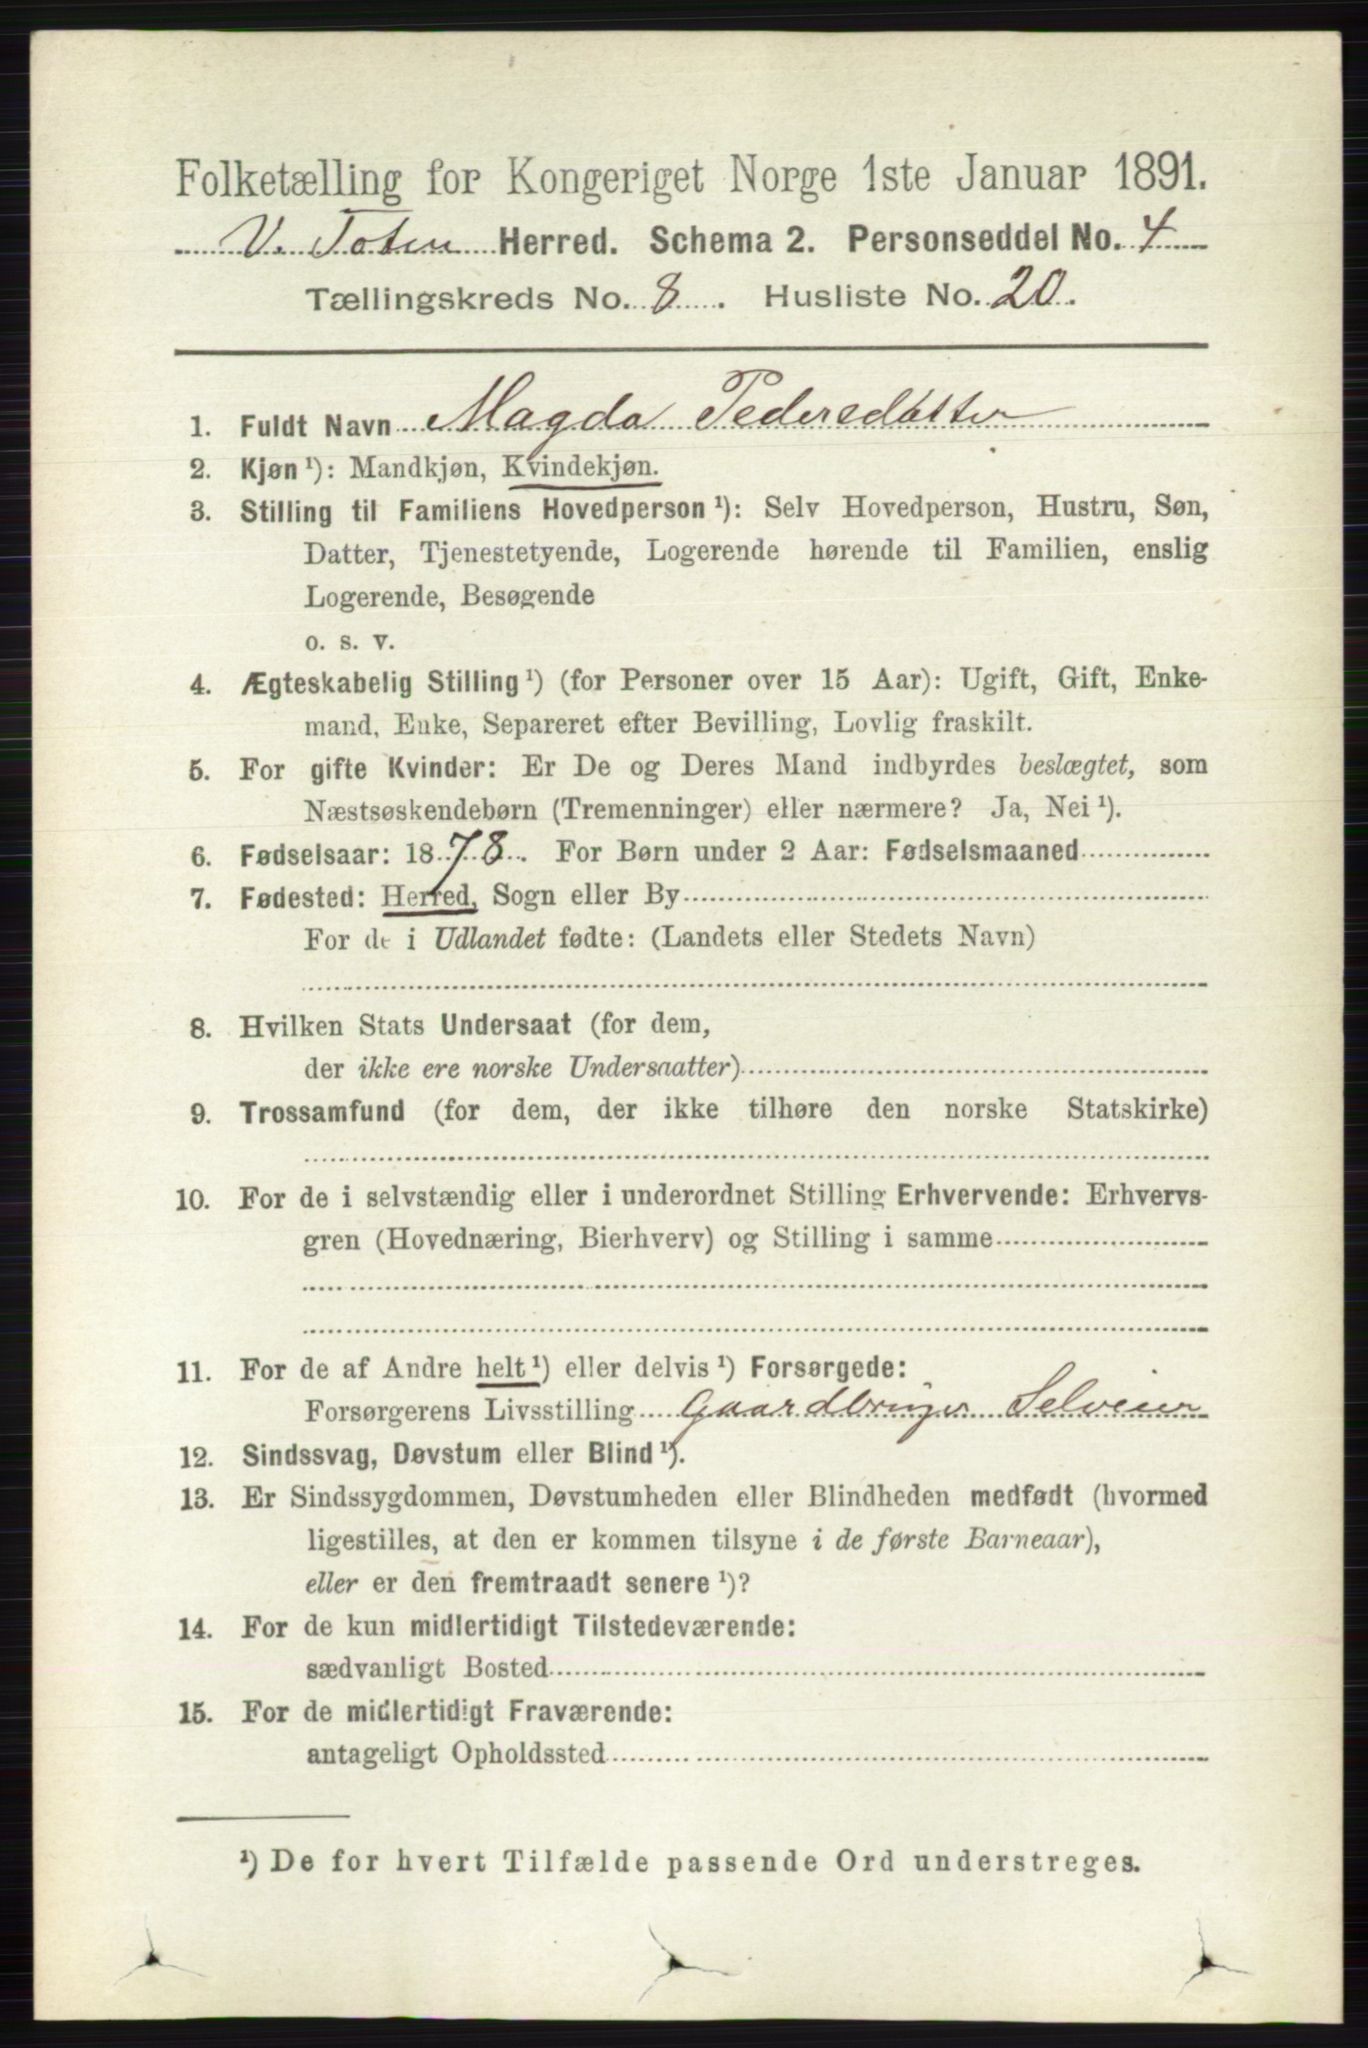 Folketælling for Kongeriget Norge 1ste Januar 1891.
V. Toten Herred. Schema 2. Personseddel No. 4
Tællingskreds No. 8. Husliste No. 20.
1. Fuldt Navn Magda Pedersdatter
2. Kjøn ¹): Mandkjøn, Kvindekjøn.
3. Stilling til Familiens Hovedperson ¹): Selv Hovedperson, Hustru, Søn,
Datter, Tjenestetyende, Logerende hørende til Familien, enslig
Logerende, Besøgende
o. s. v.
4. Ægteskabelig Stilling ¹) (for Personer over 15 Aar): Ugift, Gift, Enke-
mand, Enke, Separeret efter Bevilling, Lovlig fraskilt.
5. For gifte Kvinder: Er De og Deres Mand indbyrdes beslægtet, som
Næstsøskendebørn (Tremenninger) eller nærmere? Ja, Nei ¹).
6. Fødselsaar: 1878. For Børn under 2 Aar: Fødselsmaaned
7. Fødested: Herred, Sogn eller By
For de i Udlandet fødte: (Landets eller Stedets Navn)
8. Hvilken Stats Undersaat (for dem,
der ikke ere norske Undersaatter)
9. Trossamfund (for dem, der ikke tilhøre den norske Statskirke)
10. For de i selvstændig eller i underordnet Stilling Erhvervende: Erhvervs-
gren (Hovednæring, Bierhverv) og Stilling i samme
11. For de af Andre helt ¹) eller delvis ¹) Forsørgede:
Forsørgerens Livsstilling Gaardbruger Selveier
12. Sindssvag, Døvstum eller Blind ¹).
13. Er Sindssygdommen, Døvstumheden eller Blindheden medfødt (hvormed
ligestilles, at den er kommen tilsyne i de første Barneaar),
eller er den fremtraadt senere ¹)?
14. For de kun midlertidigt Tilstedeværende:
sædvanligt Bosted
15. For de midlertidigt Fraværende:
antageligt Opholdssted
¹) De for hvert Tilfælde passende Ord understreges.